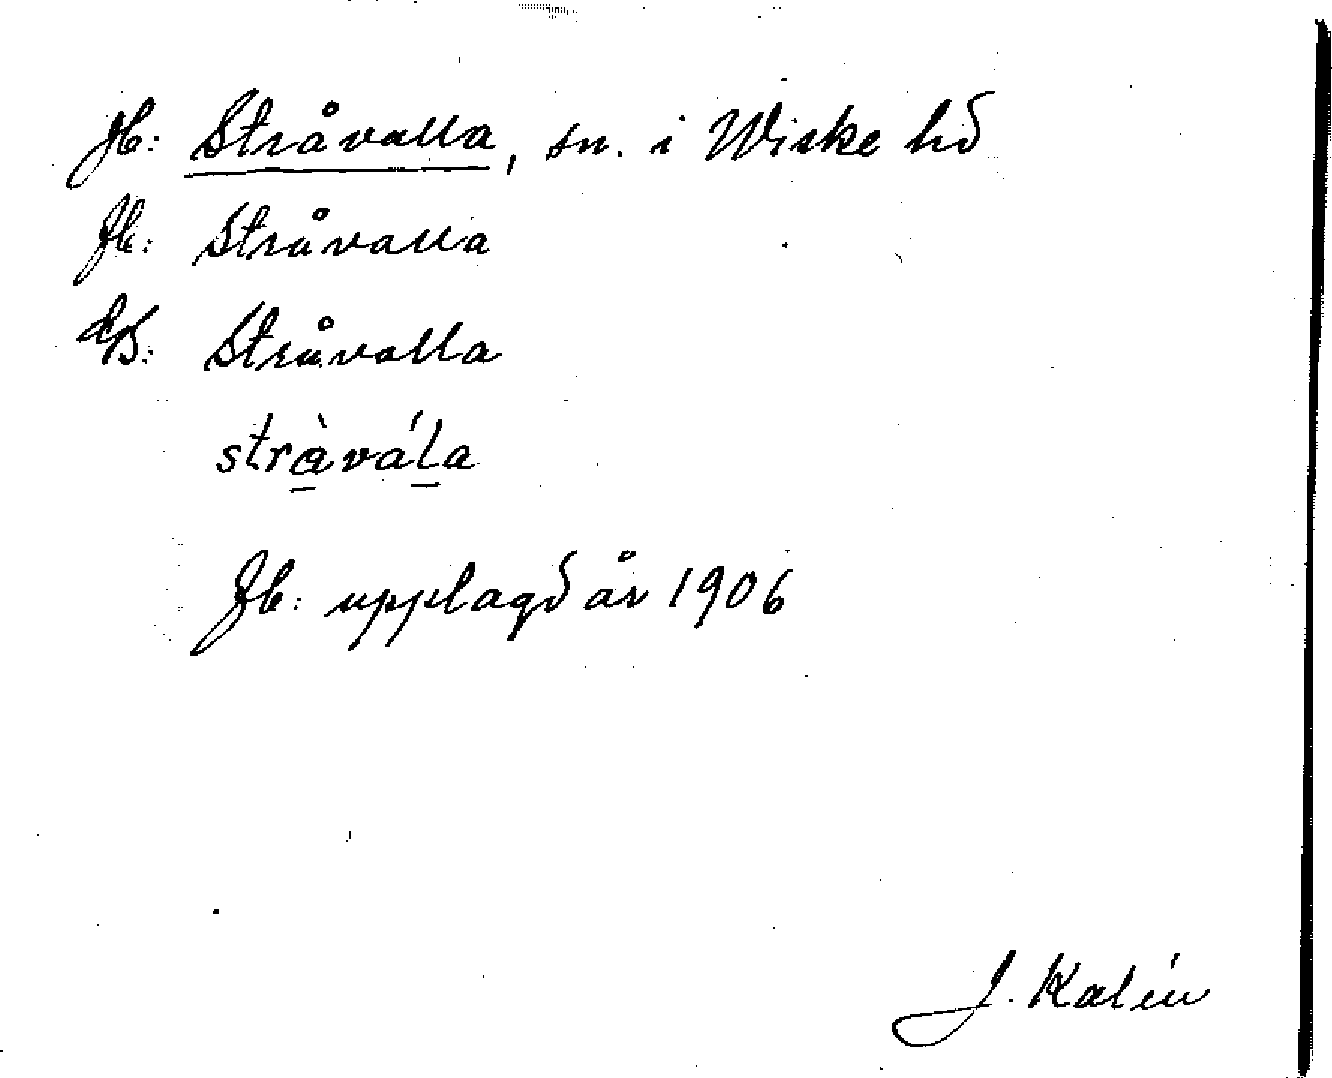 Jb: Stråvalla, sn. i Wiske hd
Jb: Stråvalla
Stråvalla
stràvála
Jb: upplagd år 1906
J. Kalén